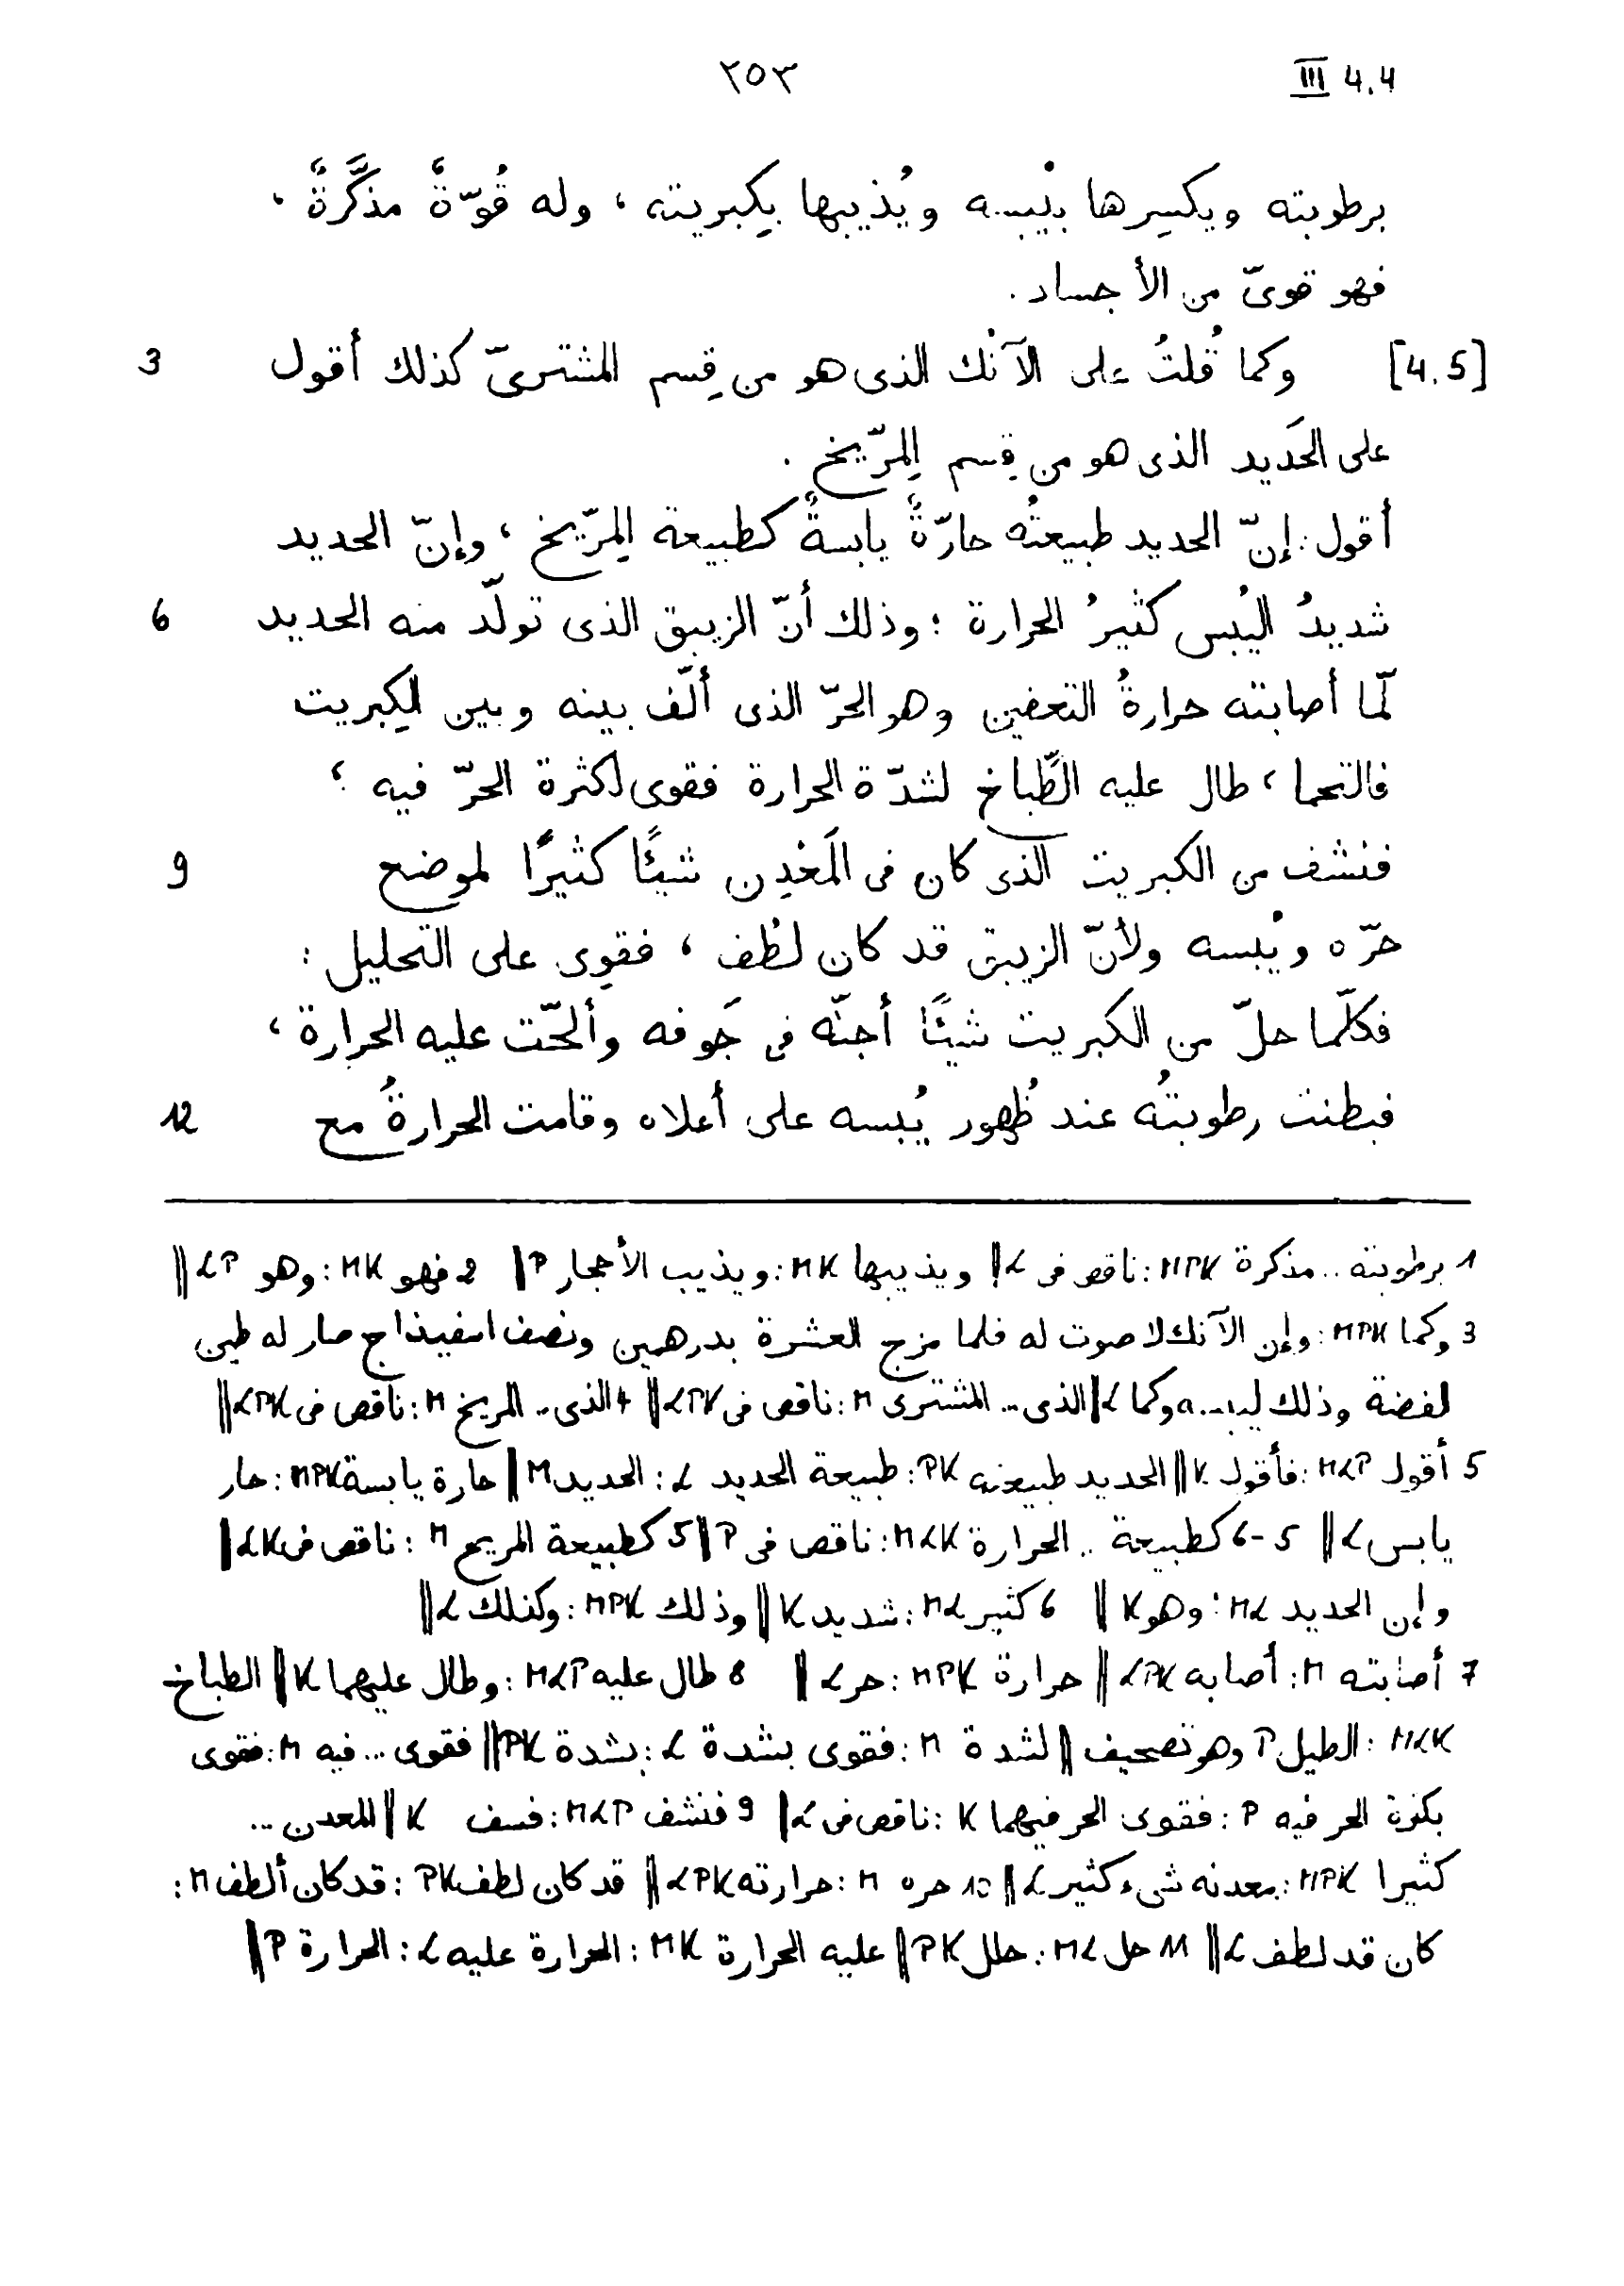 III 4.4
٢٥٣
برطوبته ويكسِرها بيُبسه ويُذيبها بِكِبريته ، وله قُوّةٌ مذكَّرةٌ ،
فهو قوىّ من الأجساد .
[4.5] وكما قُلتُ على الآنُك الذى هو من قِسم المشترىّ كذلك أقول 3
على الحَديد الذى هو من قِسم المِرّيخ .
أقول : إنّ الحديد طبيعتُه حارّةٌ يابسةٌ كطبيعة المِرّيخ ، وإنّ الحديد
شديدُ اليُبس كثيرُ الحرارة ؛ وذلك أنّ الزيبق الذى تولّد منه الحديد 6
لمّا أصابته حرارةُ التعفين وهو الحرّ الذى ألّف بينه وبين الكِبريت
فالتحما ، طال عليه الطَّباخ لشدّة الحرارة فقوى لكثرة الحرّ فيه ؛
فنشف من الكبريت الذى كان فى المَعْدِن شيئًا كثيرًا لموضع 9
حرّه ويُبسه ولأنّ الزيبق قد كان لطُف ، فقوِى على التحليل :
فكلّما حلّ من الكبريت شيئًا أجنّه فى جَوفه وألحّت عليه الحرارة ،
فبطنت رطوبتُه عند ظُهور يُبسه على أعلاه وقامت الحرارةُ مع 12
1 برطوبته .. مذكرة MPK : ناقص فى L || ويذيبها MK : ويذيب الأحجار P || 2 فهو MK : وهو LP ||
3 وكما MPK : وإن الآنك لا صوت له فلما مزج العشرة بدرهمين ونصف اسفيذاج صار له طنين
لفضة وذلك ليبسه وكما L || الذى ... المشترى M : ناقص فى LPK || 4 الذى .. المريخ M : ناقص فى LPK ||
5 أقول MLP : فأقول K || الحديد طبيعته PK : طبيعة الحديد L : الحديد M || حارة يابسة MPK : حار
يابس L || 5-6 كطبيعة .. الحرارة MLK : ناقص فى P || 5 كطبيعة المريخ M : ناقص فى LK ||
وإن الحديد ML : وهو K || 6 كثير ML : شديد K || وذلك MPK : وكذلك L ||
7 أصابته M : أصابه LPK || حرارة MPK : حر L || 8 طال عليه MLP : وطال عليهما K || الطباخ
MLK : الطيل P وهو تصحيف || لشدة M : فقوى بشدة L : بشدة PK || فقوى ... فيه M : فقوى
بكثرة الحر فيه P : فقوى الحر فيهما K : ناقص فى L || 9 فنشف MLP : فسف K || المعدن ...
كثيرا MPK : معدنه شىء كثير L || 10 حره M : حرارته LPK || قد كان لطف PK : قد كان ألطف M :
كان قد لطف L || 11 حل ML : حلل PK || عليه الحرارة MK : الحرارة عليه L : الحرارة P ||